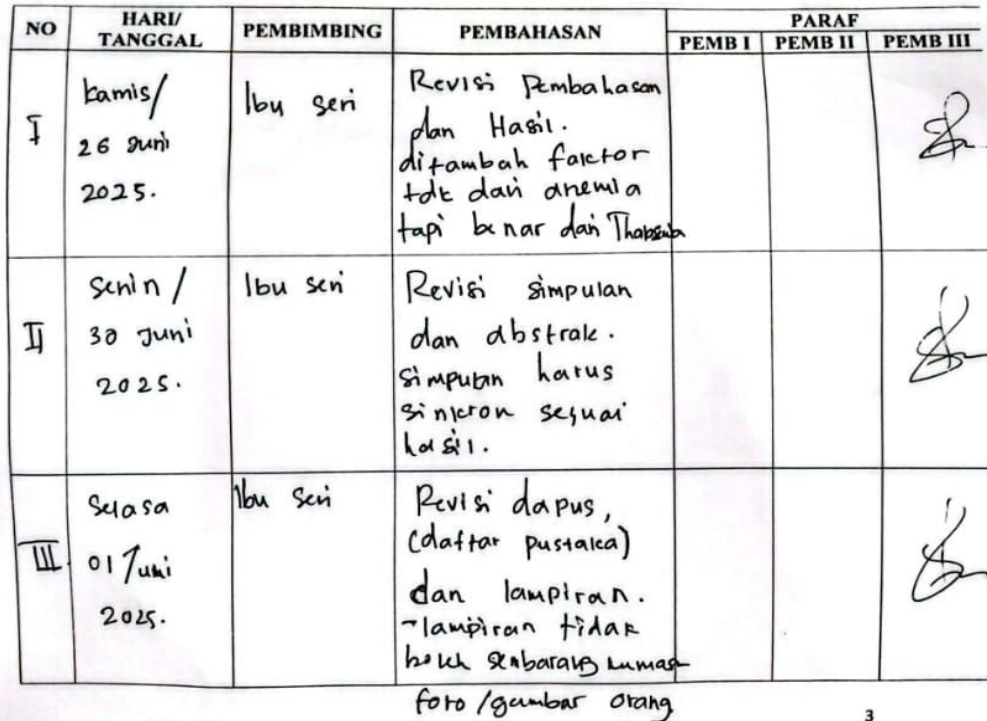 NO
HARI/
TANGGAL
PEMBIMBING
PEMBAHASAN
PARAF
PEMB I
PEMB II
PEMB III
I
Kamis/
26 Juni
2025.
Ibu Seri
Revisi Pembahasan
dan Hasil.
ditambah faktor
tdk dari anemia
tapi benar dari
II
Senin /
30 Juni
2025.
Ibu Seri
Revisi simpulan
dan abstrak.
simpulan harus
sinkron sesuai
hasil.
III
Selasa
01 Juni
2025.
Ibu Seri
Revisi dapus,
(daftar pustaka)
dan lampiran.
- lampiran tidak
boleh sembarang
foto / gambar orang
3